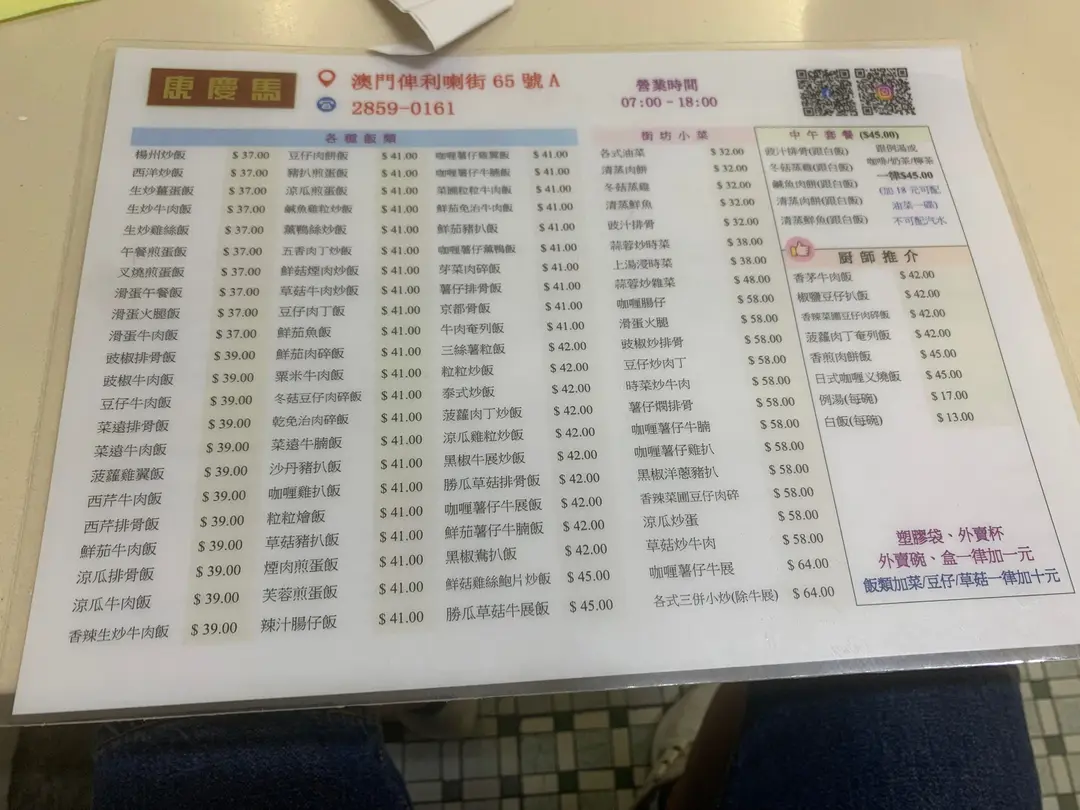 馬慶康
澳門俾利喇街 65 號 A
2859-0161
營業時間
07:00 - 18:00
各種飯類
楊州炒飯 $ 37.00
西洋炒飯 $ 37.00
生炒薑蛋飯 $ 37.00
生炒牛肉飯 $ 37.00
生炒雞絲飯 $ 37.00
午餐煎蛋飯 $ 37.00
叉燒煎蛋飯 $ 37.00
滑蛋午餐飯 $ 37.00
滑蛋火腿飯 $ 37.00
滑蛋牛肉飯 $ 37.00
豉椒排骨飯 $ 39.00
豉椒牛肉飯 $ 39.00
豆仔牛肉飯 $ 39.00
菜遠排骨飯 $ 39.00
菜遠牛肉飯 $ 39.00
菠蘿雞翼飯 $ 39.00
西芹牛肉飯 $ 39.00
西芹排骨飯 $ 39.00
鮮茄牛肉飯 $ 39.00
涼瓜排骨飯 $ 39.00
涼瓜牛肉飯 $ 39.00
香辣生炒牛肉飯 $ 39.00
豆仔肉餅飯 $ 41.00
豬扒煎蛋飯 $ 41.00
涼瓜煎蛋飯 $ 41.00
鹹魚雞粒炒飯 $ 41.00
薰鴨絲炒飯 $ 41.00
五香肉丁炒飯 $ 41.00
鮮菇煙肉炒飯 $ 41.00
草菇牛肉炒飯 $ 41.00
豆仔肉丁飯 $ 41.00
鮮茄魚飯 $ 41.00
鮮茄肉碎飯 $ 41.00
粟米牛肉飯 $ 41.00
冬菇豆仔肉碎飯 $ 41.00
乾免治肉碎飯 $ 41.00
菜遠牛腩飯 $ 41.00
沙丹豬扒飯 $ 41.00
咖喱雞扒飯 $ 41.00
粒粒燴飯 $ 41.00
草菇豬扒飯 $ 41.00
煙肉煎蛋飯 $ 41.00
芙蓉煎蛋飯 $ 41.00
辣汁腸仔飯 $ 41.00
咖喱薯仔雞翼飯 $ 41.00
咖喱薯仔牛腩飯 $ 41.00
菜圃粒粒牛肉飯 $ 41.00
鮮茄免治牛肉飯 $ 41.00
鮮茄豬扒飯 $ 41.00
咖喱薯仔薰鴨飯 $ 41.00
芽菜肉碎飯 $ 41.00
薯仔排骨飯 $ 41.00
京都骨飯 $ 41.00
牛肉奄列飯 $ 41.00
三絲薯粒飯 $ 42.00
粒粒炒飯 $ 42.00
泰式炒飯 $ 42.00
菠蘿肉丁炒飯 $ 42.00
涼瓜雞粒炒飯 $ 42.00
黑椒牛展炒飯 $ 42.00
勝瓜草菇排骨飯 $ 42.00
咖喱薯仔牛展飯 $ 42.00
鮮茄薯仔牛腩飯 $ 42.00
黑椒鴦扒飯 $ 42.00
鮮菇雞絲鮑片炒飯 $ 45.00
勝瓜草菇牛展飯 $ 45.00
街坊小菜
各式油菜 $ 32.00
清蒸肉餅 $ 32.00
冬菇蒸雞 $ 32.00
清蒸鮮魚 $ 32.00
豉汁排骨 $ 32.00
蒜蓉炒時菜 $ 38.00
上湯浸時菜 $ 38.00
蒜蓉炒雜菜 $ 48.00
咖喱腸仔 $ 58.00
滑蛋火腿 $ 58.00
豉椒炒排骨 $ 58.00
豆仔炒肉丁 $ 58.00
時菜炒牛肉 $ 58.00
薯仔燜排骨 $ 58.00
咖喱薯仔牛腩 $ 58.00
咖喱薯仔雞扒 $ 58.00
黑椒洋蔥豬扒 $ 58.00
香辣菜圃豆仔肉碎 $ 58.00
涼瓜炒蛋 $ 58.00
草菇炒牛肉 $ 58.00
咖喱薯仔牛展 $ 64.00
各式三併小炒(除牛展) $ 64.00
中午套餐 ($45.00)
豉汁排骨(跟白飯)
冬菇蒸雞(跟白飯)
鹹魚肉餅(跟白飯)
清蒸肉餅(跟白飯)
清蒸鮮魚(跟白飯)
跟例湯或
咖啡/奶茶/檸茶
一律$45.00
(加 18 元可配
油菜一碟)
不可配汽水
厨師推介
香茅牛肉飯 $ 42.00
椒鹽豆仔扒飯 $ 42.00
香辣菜圃豆仔肉碎飯 $ 42.00
菠蘿肉丁奄列飯 $ 42.00
香煎肉餅飯 $ 45.00
日式咖喱叉燒飯 $ 45.00
例湯(每碗) $ 17.00
白飯(每碗) $ 13.00
塑膠袋、外賣杯
外賣碗、盒一律加一元
飯類加菜/豆仔/草菇一律加十元